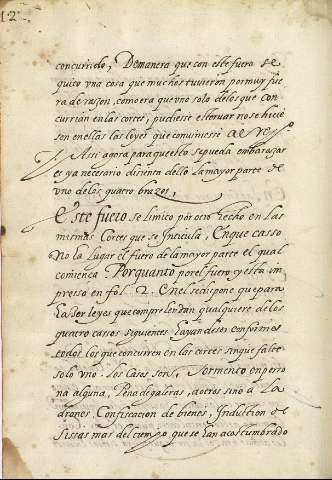 12
concurrido, Demanera que con este fuero se
quito vna cosa que muchos tuvieron por muy fue
ra de razon, como era que vno solo de los que con
currian en las cortes, pudiesse estorvar no se hicie
sen en ellas las leyes que conviniessē al Reyº
Assi agora para que esto se pueda embarazar
es ya necesario disienta dello la mayor parte de
vno de los quatro brazos,
Este fuero se limito por otro hecho en las
mismas Cortes que se Intitula, En que casso
No ha lugar el fuero de la mayor parte el qual
comienca Por quanto por el fuero y esta im
presso en fol. 2. en el se dispone que para
hasser leyes que comprehendan qualquiere de los
quatro cassos siguientes hayan de ser conformes
todos los que concurren en las cortes sin que falte
solo vno. Los Casos son, Tormento en perso
na alguna, Pena de galeras, a otros sino a La
drones, Confiscacion de bienes, Induction de
sissas mas del tiempo que se han acostumbrado